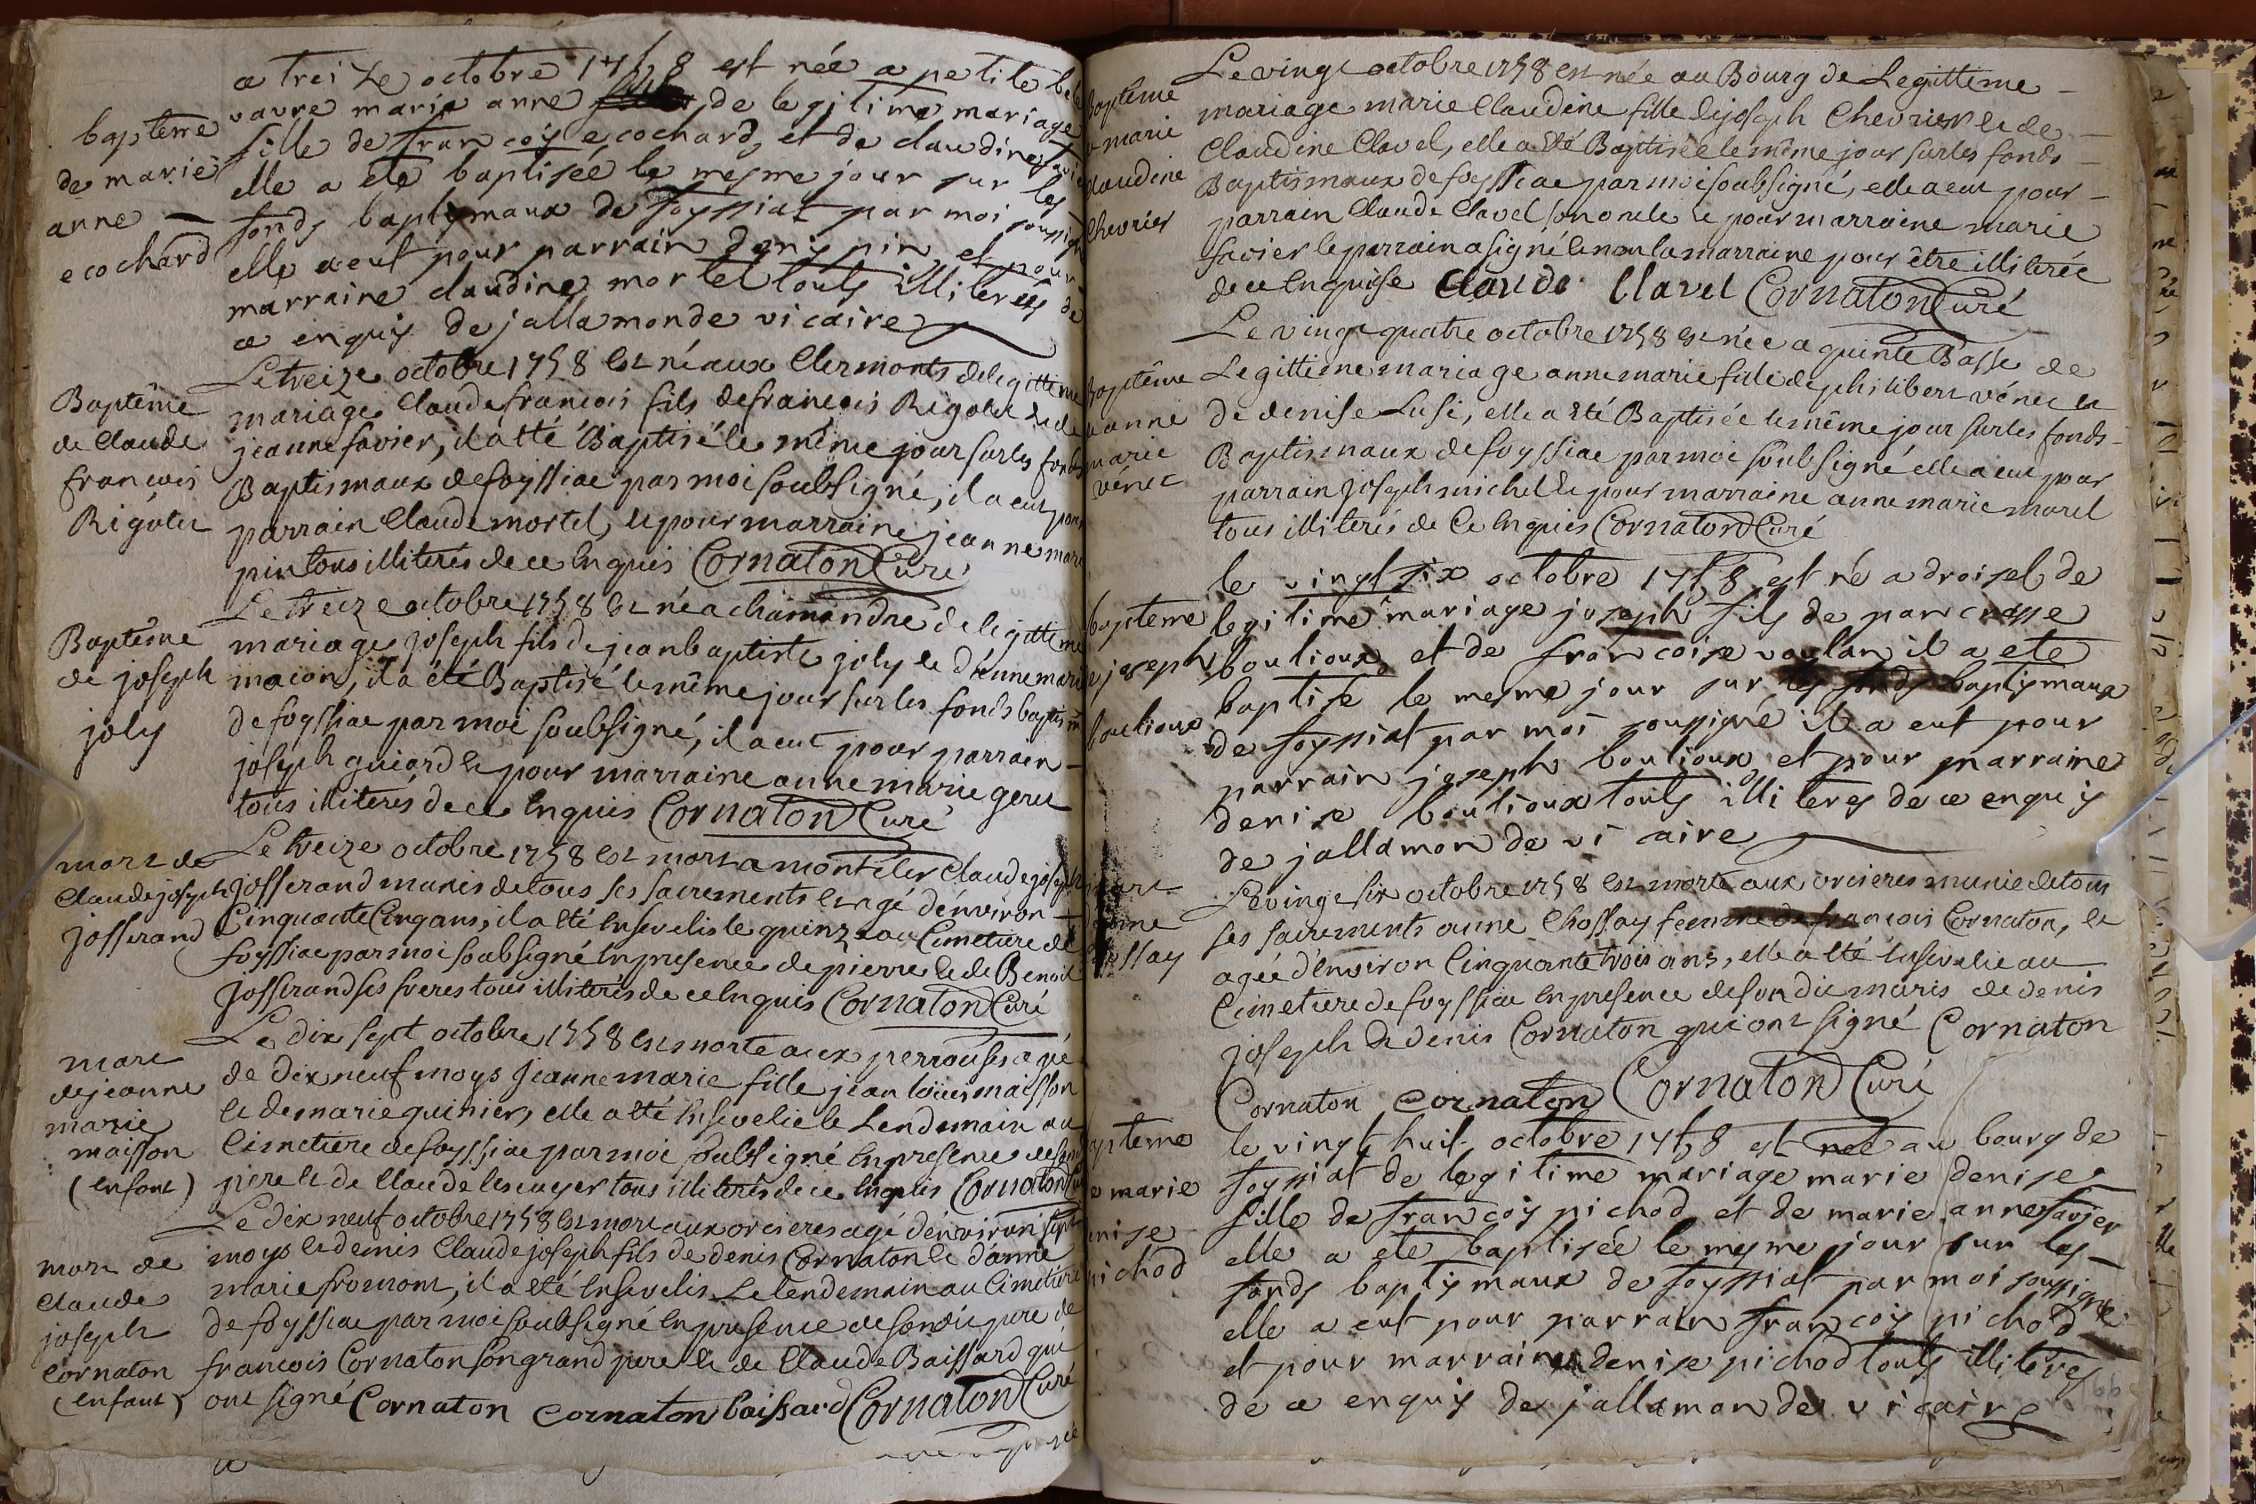 a treize octobre 1758 est née a petite bele
vavre marie anne de legitime mariage
fille de francois ecochard, et de claudine
elle a eté baptisée le mesme jour sur les
fonds baptismaux de foyssiat par moi soussigné
elle a eut pour parrain denis pin et pour
marraine claudine mortel touts illiterés de
ce enquis dejallamonde vicaire
baptême
de marie
anne
ecochard
Le treize octobre 1758 est né aux Clermonts de legittime
mariage Claude francois fils de francois Rigolet et de
jeanne favier, il a été Baptisé le même jour sur les fonds
Baptismaux de foyssiac par moi soubsigné, il a eut pour
parrain Claude mortel, et pour marraine jeanne marie
pin tous illiterés de ce Enquis Cornaton Curé
Baptême
de Claude
francois
Rigolet
Le treize octobre 1758 est né a chamandre de legittime
mariage joseph fils de jean baptiste joly et d'anne marie
macon, il a été Baptisé le même jour sur les fonds baptism
de foyssiac par moi soubsigné, il a eut pour parrain
joseph guiard et pour marraine anne marie geru
tous illiterés de ce Enquis Cornaton Curé
Baptême
de joseph
joly
Le treize octobre 1758 est mort a montéler Claude joseph
josserand munis de tous ses sacrements et agé d'environ
Cinquante Cinq ans, il a été Ensevelis le quinze au Cimetiere de
foyssiac par moi soubsigné En presence de pierre et de Benoit
josserand ses freres tous illiterés de ce Enquis Cornaton Curé
mort de
Claude joseph
josserand
Le dix sept octobre 1758 est morte aux perrouses agé
de dix neuf moys jeanne marie fille jean loüis maisson
et de marie quinier, elle a été Ensevelie le Lendemain au
Cimetiere de foyssiac par moi soubsigné En presence de son
pere et de Claude lescuyer tous illiterés de ce Enquis Cornaton Curé
mort
de jeanne
marie
maisson
(Enfant)
Le dix neuf octobre 1758 est mort aux orcieres agé d'environ sept
moys et demis Claude joseph fils de denis Cornaton et d'anne
marie fromont, il a été Ensevelis Le lendemain au Cimetiere
de foyssiac par moi soubsigné En presence de son dit pere de
francois Cornaton son grand pere et de Claude Baissard qui
ont signé Cornaton cornaton baissard Cornaton Curé
mort de
Claude
joseph
Cornaton
(Enfant)
Le vingt octobre 1758 est née au Bourg de Legittime
mariage marie Claudine fille de joseph Chevrier et de
Claudine Clavel, elle a été Baptisée le même jour sur les fonds
Baptismaux de foyssiac par moi soubsigné, elle a eut pour
parrain Claude Clavel son oncle et pour marraine marie
favier le parrain a signé et non la marraine pour être illiterée
de ce Enquise Claude Clavel Cornaton Curé
Baptême
marie
Claudine
Chevrier
Le vingt quatre octobre 1758 est née a quinte Basse de
Legittime mariage anne marie fille de philibert vénet et
de denise Lusi, elle a été Baptisée le même jour sur les fonds
Baptismaux de foyssiac par moi soubsigné elle a eut pour
parrain joseph michel et pour marraine anne marie morel
tous illiterés de Ce Enquis Cornaton Curé
Baptême
anne
marie
vénet
le vingt six octobre 1758 est né a droisel de
legitime mariage joseph fils de pancrasse
boulioux et de francoise voulan il a eté
baptise le mesme jour sur les fonds baptismaux
de foyssiat par moi soussigné il a eut pour
parrain joseph boulioux et pour marraine
denise boulioux touts illiteres de ce enquis
dejallamonde vicaire
baptême
joseph
boulioux
Le vingt six octobre 1758 est morte aux orcieres munie de tous
ses sacrements anne Chossay femme de francois Cornaton, et
agée d'Environ Cinquante trois ans, elle a été Ensevelie au
Cimetiere de foyssiac En presence de son dit maris de denis
joseph et denis Cornaton qui ont signé Cornaton
Cornaton cornaton Cornaton Curé
mort
le vingt huit octobre 1758 est neé au bourg de
foyssiat de legitime mariage marie denise
fille de francois pichod et de marie anne favier
elle a eté baptisée le mesme jour sur les
fonds baptismaux de foyssiat par moi soussigné
elle a eut pour parrain francois pichod
et pour marraine denise pichod touts illiteres
de ce enquis dejallamonde vicaire
baptême
de marie
denise
pichod